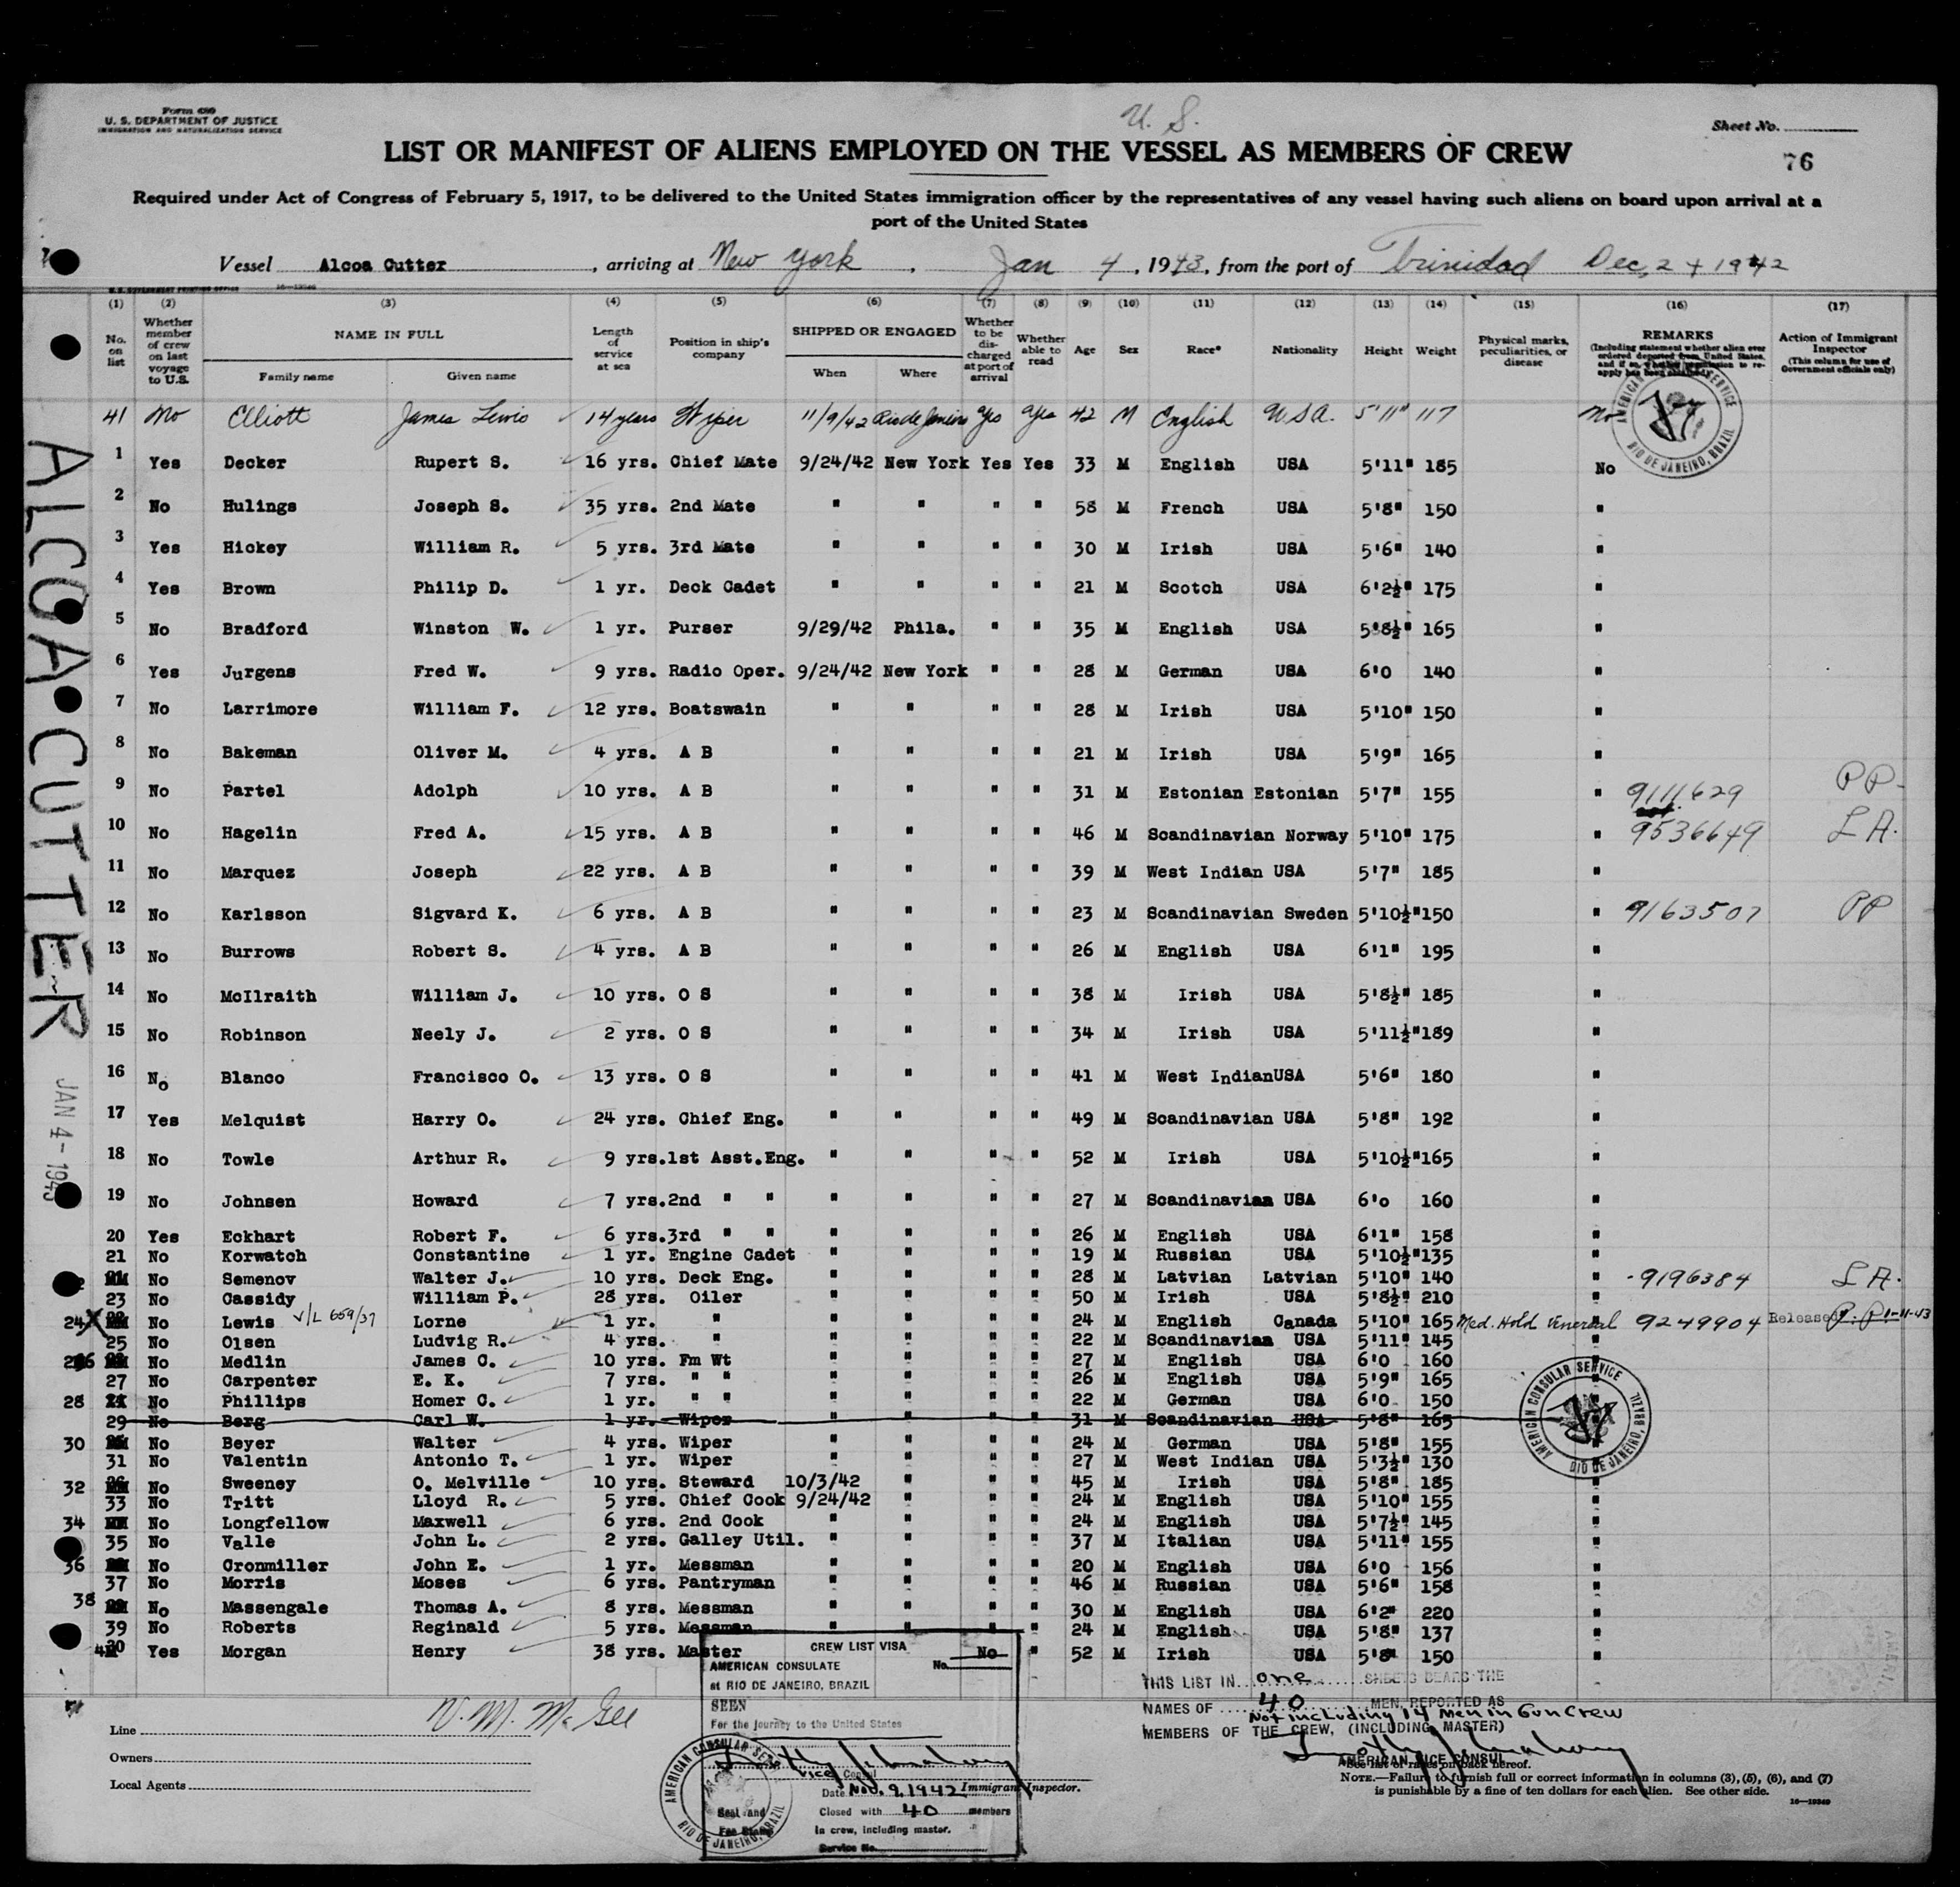 Form 680
U. S. DEPARTMENT OF JUSTICE
IMMIGRATION AND NATURALIZATION SERVICE
U. S.
Sheet No.
LIST OR MANIFEST OF ALIENS EMPLOYED ON THE VESSEL AS MEMBERS OF CREW
76
Required under Act of Congress of February 5, 1917, to be delivered to the United States immigration officer by the representatives of any vessel having such aliens on board upon arrival at a
port of the United States
Vessel Alcoa Cutter, arriving at New York, Jan 4, 1943, from the port of Trinidad Dec, 24 1942
(1) (2) (3) (4) (5) (6) (7) (8) (9) (10) (11) (12) (13) (14) (15) (16) (17)
No. on list
Whether member of crew on last voyage to U.S.
NAME IN FULL
Family name Given name
Length of service at sea
Position in ship's company
SHIPPED OR ENGAGED
When Where
Whether to be discharged at port of arrival
Whether able to read
Age Sex Race* Nationality Height Weight
Physical marks, peculiarities, or disease
REMARKS
(Including statement whether alien ever ordered deported from United States, and if so, whether permission to reapply has been obtained)
Action of Immigrant Inspector
(This column for use of Government officials only)
41 No Elliott James Lewis 14 years Wiper 11/9/42 Rio de Janeiro Yes Yes 42 M English U.S.A. 5'11" 117 No
1 Yes Decker Rupert S. 16 yrs. Chief Mate 9/24/42 New York Yes Yes 33 M English USA 5'11" 185 No
2 No Hulings Joseph S. 35 yrs. 2nd Mate " " " " 58 M French USA 5'8" 150 "
3 Yes Hickey William R. 5 yrs. 3rd Mate " " " " 30 M Irish USA 5'6" 140 "
4 Yes Brown Philip D. 1 yr. Deck Cadet " " " " 21 M Scotch USA 6'2½" 175 "
5 No Bradford Winston W. 1 yr. Purser 9/29/42 Phila. " " 35 M English USA 5'8½" 165 "
6 Yes Jurgens Fred W. 9 yrs. Radio Oper. 9/24/42 New York " " 28 M German USA 6'0 140 "
7 No Larrimore William F. 12 yrs. Boatswain " " " " 28 M Irish USA 5'10" 150 "
8 No Bakeman Oliver M. 4 yrs. A B " " " " 21 M Irish USA 5'9" 165 "
9 No Partel Adolph 10 yrs. A B " " " " 31 M Estonian Estonian 5'7" 155 " 9111629 PP
10 No Hagelin Fred A. 15 yrs. A B " " " " 46 M Scandinavian Norway 5'10" 175 " 9536649 L A.
11 No Marquez Joseph 22 yrs. A B " " " " 39 M West Indian USA 5'7" 185 "
12 No Karlsson Sigvard K. 6 yrs. A B " " " " 23 M Scandinavian Sweden 5'10½" 150 " 9163507 PP
13 No Burrows Robert S. 4 yrs. A B " " " " 26 M English USA 6'1" 195 "
14 No McIlraith William J. 10 yrs. O S " " " " 38 M Irish USA 5'8½" 185 "
15 No Robinson Neely J. 2 yrs. O S " " " " 34 M Irish USA 5'11½" 189 "
16 No Blanco Francisco O. 13 yrs. O S " " " " 41 M West Indian USA 5'6" 180 "
17 Yes Melquist Harry O. 24 yrs. Chief Eng. " " " " 49 M Scandinavian USA 5'8" 192 "
18 No Towle Arthur R. 9 yrs. 1st Asst.Eng. " " " " 52 M Irish USA 5'10½" 165 "
19 No Johnsen Howard 7 yrs. 2nd " " " " " " 27 M Scandinavian USA 6'0 160 "
20 Yes Eckhart Robert F. 6 yrs. 3rd " " " " " " 26 M English USA 6'1" 158 "
21 No Korwatch Constantine 1 yr. Engine Cadet " " " " 19 M Russian USA 5'10½" 135 "
2 No Semenov Walter J. 10 yrs. Deck Eng. " " " " 28 M Latvian Latvian 5'10" 140 9196384 L A.
23 No Cassidy William P. 28 yrs. Oiler " " " " 50 M Irish USA 5'8½" 210 "
24 X No Lewis V/L 659/37 Lorne 1 yr. " " " " " 24 M English Canada 5'10" 165 Med. Hold Venereal 9249904 Released P.P. 1-11-43
25 No Olsen Ludvig R. 4 yrs. " " " " " 22 M Scandinavian USA 5'11" 145 "
26 No Medlin James C. 10 yrs. Fm Wt " " " " 27 M English USA 6'0 160 "
27 No Carpenter E. K. 7 yrs. " " " " " " 26 M English USA 5'9" 165 "
28 No Phillips Homer C. 1 yr. " " " " " " 22 M German USA 6'0 150
29 No Berg Carl W. 1 yr. Wiper " " " " 31 M Scandinavian USA 5'8" 165
30 No Beyer Walter 4 yrs. Wiper " " " " 24 M German USA 5'8" 155
31 No Valentin Antonio T. 1 yr. Wiper " " " " 27 M West Indian USA 5'3½" 130
32 No Sweeney O. Melville 10 yrs. Steward 10/3/42 " " " 45 M Irish USA 5'8" 185 "
33 No Tritt Lloyd R. 5 yrs. Chief Cook 9/24/42 " " " 24 M English USA 5'10" 155 "
34 No Longfellow Maxwell 6 yrs. 2nd Cook " " " " 24 M English USA 5'7½" 145 "
35 No Valle John L. 2 yrs. Galley Util. " " " " 37 M Italian USA 5'11" 155 "
36 No Cronmiller John E. 1 yr. Messman " " " " 20 M English USA 6'0 156 "
37 No Morris Moses 6 yrs. Pantryman " " " " 46 M Russian USA 5'6" 158 "
38 No Massengale Thomas A. 8 yrs. Messman " " " " 30 M English USA 6'2" 220 "
39 No Roberts Reginald 5 yrs. Messman " " " " 24 M English USA 5'8" 137 "
40 Yes Morgan Henry 38 yrs. Master No " 52 M Irish USA 5'8" 150 "
ALCOA CUTTER
JAN 4 - 1943
AMERICAN CONSULAR SERVICE
RIO DE JANEIRO, BRAZIL
AMERICAN CONSULAR SERVICE
RIO DE JANEIRO, BRAZIL
CREW LIST VISA
AMERICAN CONSULATE No.
at RIO DE JANEIRO, BRAZIL
SEEN
For the journey to the United States
Vice Consul
Immigrant Inspector.
Date Nov. 9, 1942
Closed with 40 members
In crew, including master.
Seal and
Fee Stamp
Service No.
AMERICAN CONSULAR SERVICE
RIO DE JANEIRO, BRAZIL
THIS LIST IN one SHEETS BEARS THE
NAMES OF 40 MEN, REPORTED AS
Not including 14 Men in Gun Crew
MEMBERS OF THE CREW, (INCLUDING MASTER)
AMERICAN VICE CONSUL
See list of races on back hereof.
NOTE.—Failure to furnish full or correct information in columns (3), (5), (6), and (7)
is punishable by a fine of ten dollars for each alien. See other side.
16—19349
V. M. McGee
Line
Owners
Local Agents